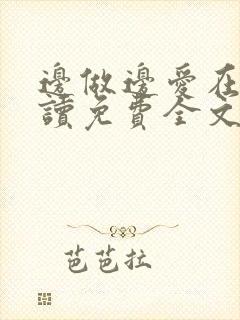 邊做邊愛在
讀免費全文
芭芭拉